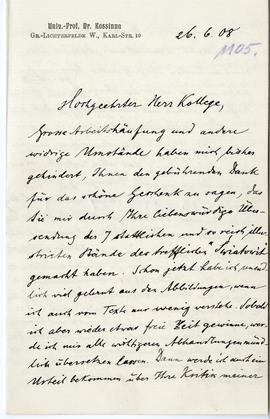 Univ.-Prof. Dr. Kossinna
Gr.-Lichterfelde W., Karl-Str. 10
26. 6. 08
1105.
Hochgeehrter Herr Kollege,
Grosse Arbeitshäufung und andere
widrige Umstände haben mich bisher
gehindert, Ihnen den gebührenden Dank
für das schöne Geschenk zu sagen, das
Sie mir durch Ihre liebenswürdige Über-
sendung der 7 stattlichen und so reich illu-
strirten Bände des trefflichen "Swiatowit"
gemacht haben. Schon jetzt habe ich
viel gelernt aus den Abbildungen, wenn
ich auch vom Texte nur wenig verstehe. Sobald
ich aber wieder etwas freie Zeit gewinne, wer-
de ich mir alle wichtigeren Abhandlungen münd-
lich übersetzen lassen. Dann werde ich auch ein
Urteil bekommen über Ihre Kritik meiner